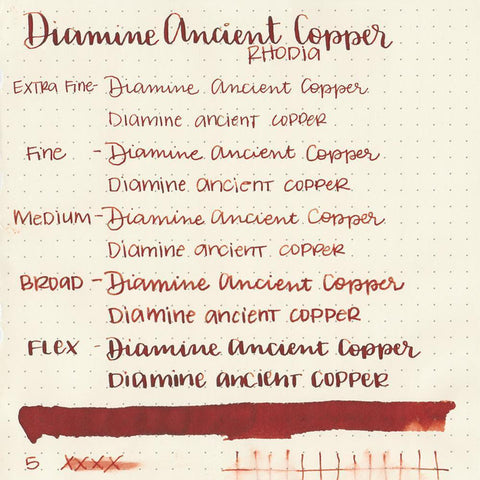 Diamine Ancient Copper
RHODIA
EXTRA Fine - Diamine Ancient Copper
Diamine ancient COPPER
Fine - Diamine Ancient Copper
Diamine ancient COPPER
MEDIUM - Diamine Ancient Copper
Diamine ancient COPPER
BROAD - Diamine Ancient Copper
Diamine ancient COPPER
FLEX - Diamine Ancient Copper
Diamine ancient COPPER
5 XXXX